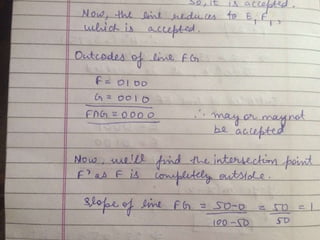 So, it is accepted.
Now, the line reduces to E, F,
which is accepted.
Outcodes of line FG
F = 0100
G = 0010
F∩G = 0000 ∴ may or may not
be accepted
Now, we'll find the intersection point
F' as F is completely outside.
Slope of line FG = 50-0 = 50 = 1
100-50 50